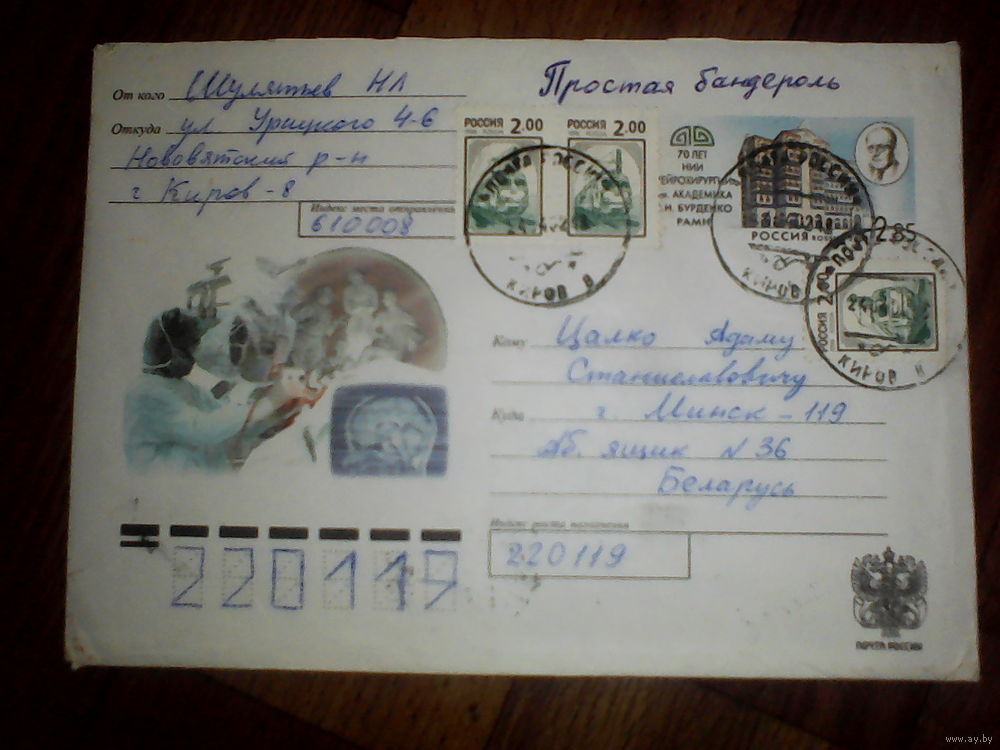 Простая бандероль
От кого Шулятьев НЛ
Откуда ул Урицкого 4-6
Нововятский р-н
г Киров-8
Индекс места отправления
610008
РОССИЯ 2.00
РОССИЯ 2.00
70 ЛЕТ
НИИ
НЕЙРОХИРУРГИИ
ИМ. АКАДЕМИКА
Н.Н. БУРДЕНКО
РАМН
РОССИЯ
2.85
РОССИЯ 2.00
РОССИЯ
КИРОВ 8
РОССИЯ
КИРОВ
КИРОВ
Кому Цалко Адаму
Станиславовичу
Куда г. Минск-119
Аб. ящик N 36
Беларусь
Индекс места назначения
220119
220119
ПОЧТА РОССИИ
www.ay.by